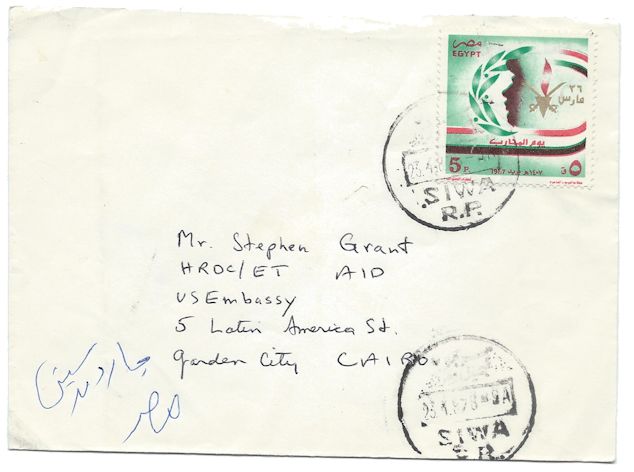 مصر
EGYPT
٢٦
مارس
يوم المحارب
5 P.
1987 ١٤٠٧
٥ ق
SIWA
R.P.
Mr. Stephen Grant
HROC/ET AID
US Embassy
5 Latin America St.
Garden City CAIRO
جاردن سيتى
مصر
SIWA
S.R.